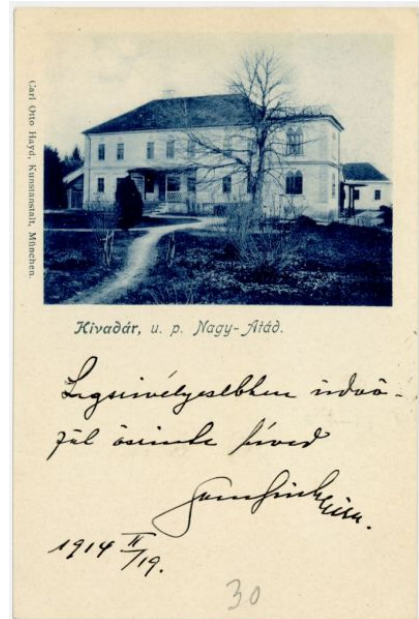 Carl Otto Hayd, Kunstanstalt, München.
Kivadár, u. p. Nagy-Atád.
Legszivélyesebben üdvö-
zül őszinte híved
1914 II/19.
30